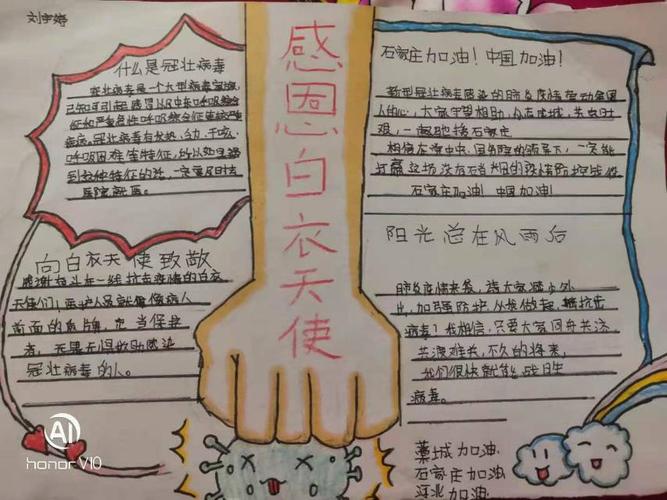 刘宇婷
感恩白衣天使
什么是冠壮病毒
冠壮病毒是一个大型病毒家族,
已知可引起感冒以及中东呼吸综合
征和严重急性呼吸综合征等较严重
疾病,冠壮病毒有发热、乏力、干咳、
呼吸困难等特征,所以如果遇
到这种特征的话,一定要及时去
医院就医。
向白衣天使致敬
感谢奋斗在一线抗击疫情的白衣
天使们,医护人员就像像病人
前面的盾牌,充当保护
者,无畏无惧救助感染
冠壮病毒的人。
石家庄加油!中国加油!
新型冠壮病毒感染的肺炎疫情牵动全国
人的心,大家守望相助,众志成城,共克时
艰,一起驰援石家庄
相信在党中央、国务院的领导下,一定能
打赢这场没有硝烟的疫情防控战役
石家庄加油!中国加油!
阳光总在风雨后
肺炎疫情来袭,请大家减少外
出,加强防护,从我做起,抵抗击
病毒!我相信,只要大家同舟共济,
共渡难关,不久的将来,
我们很快就能战胜
病毒。
藁城加油
石家庄加油
河北加油
AI
honor V10